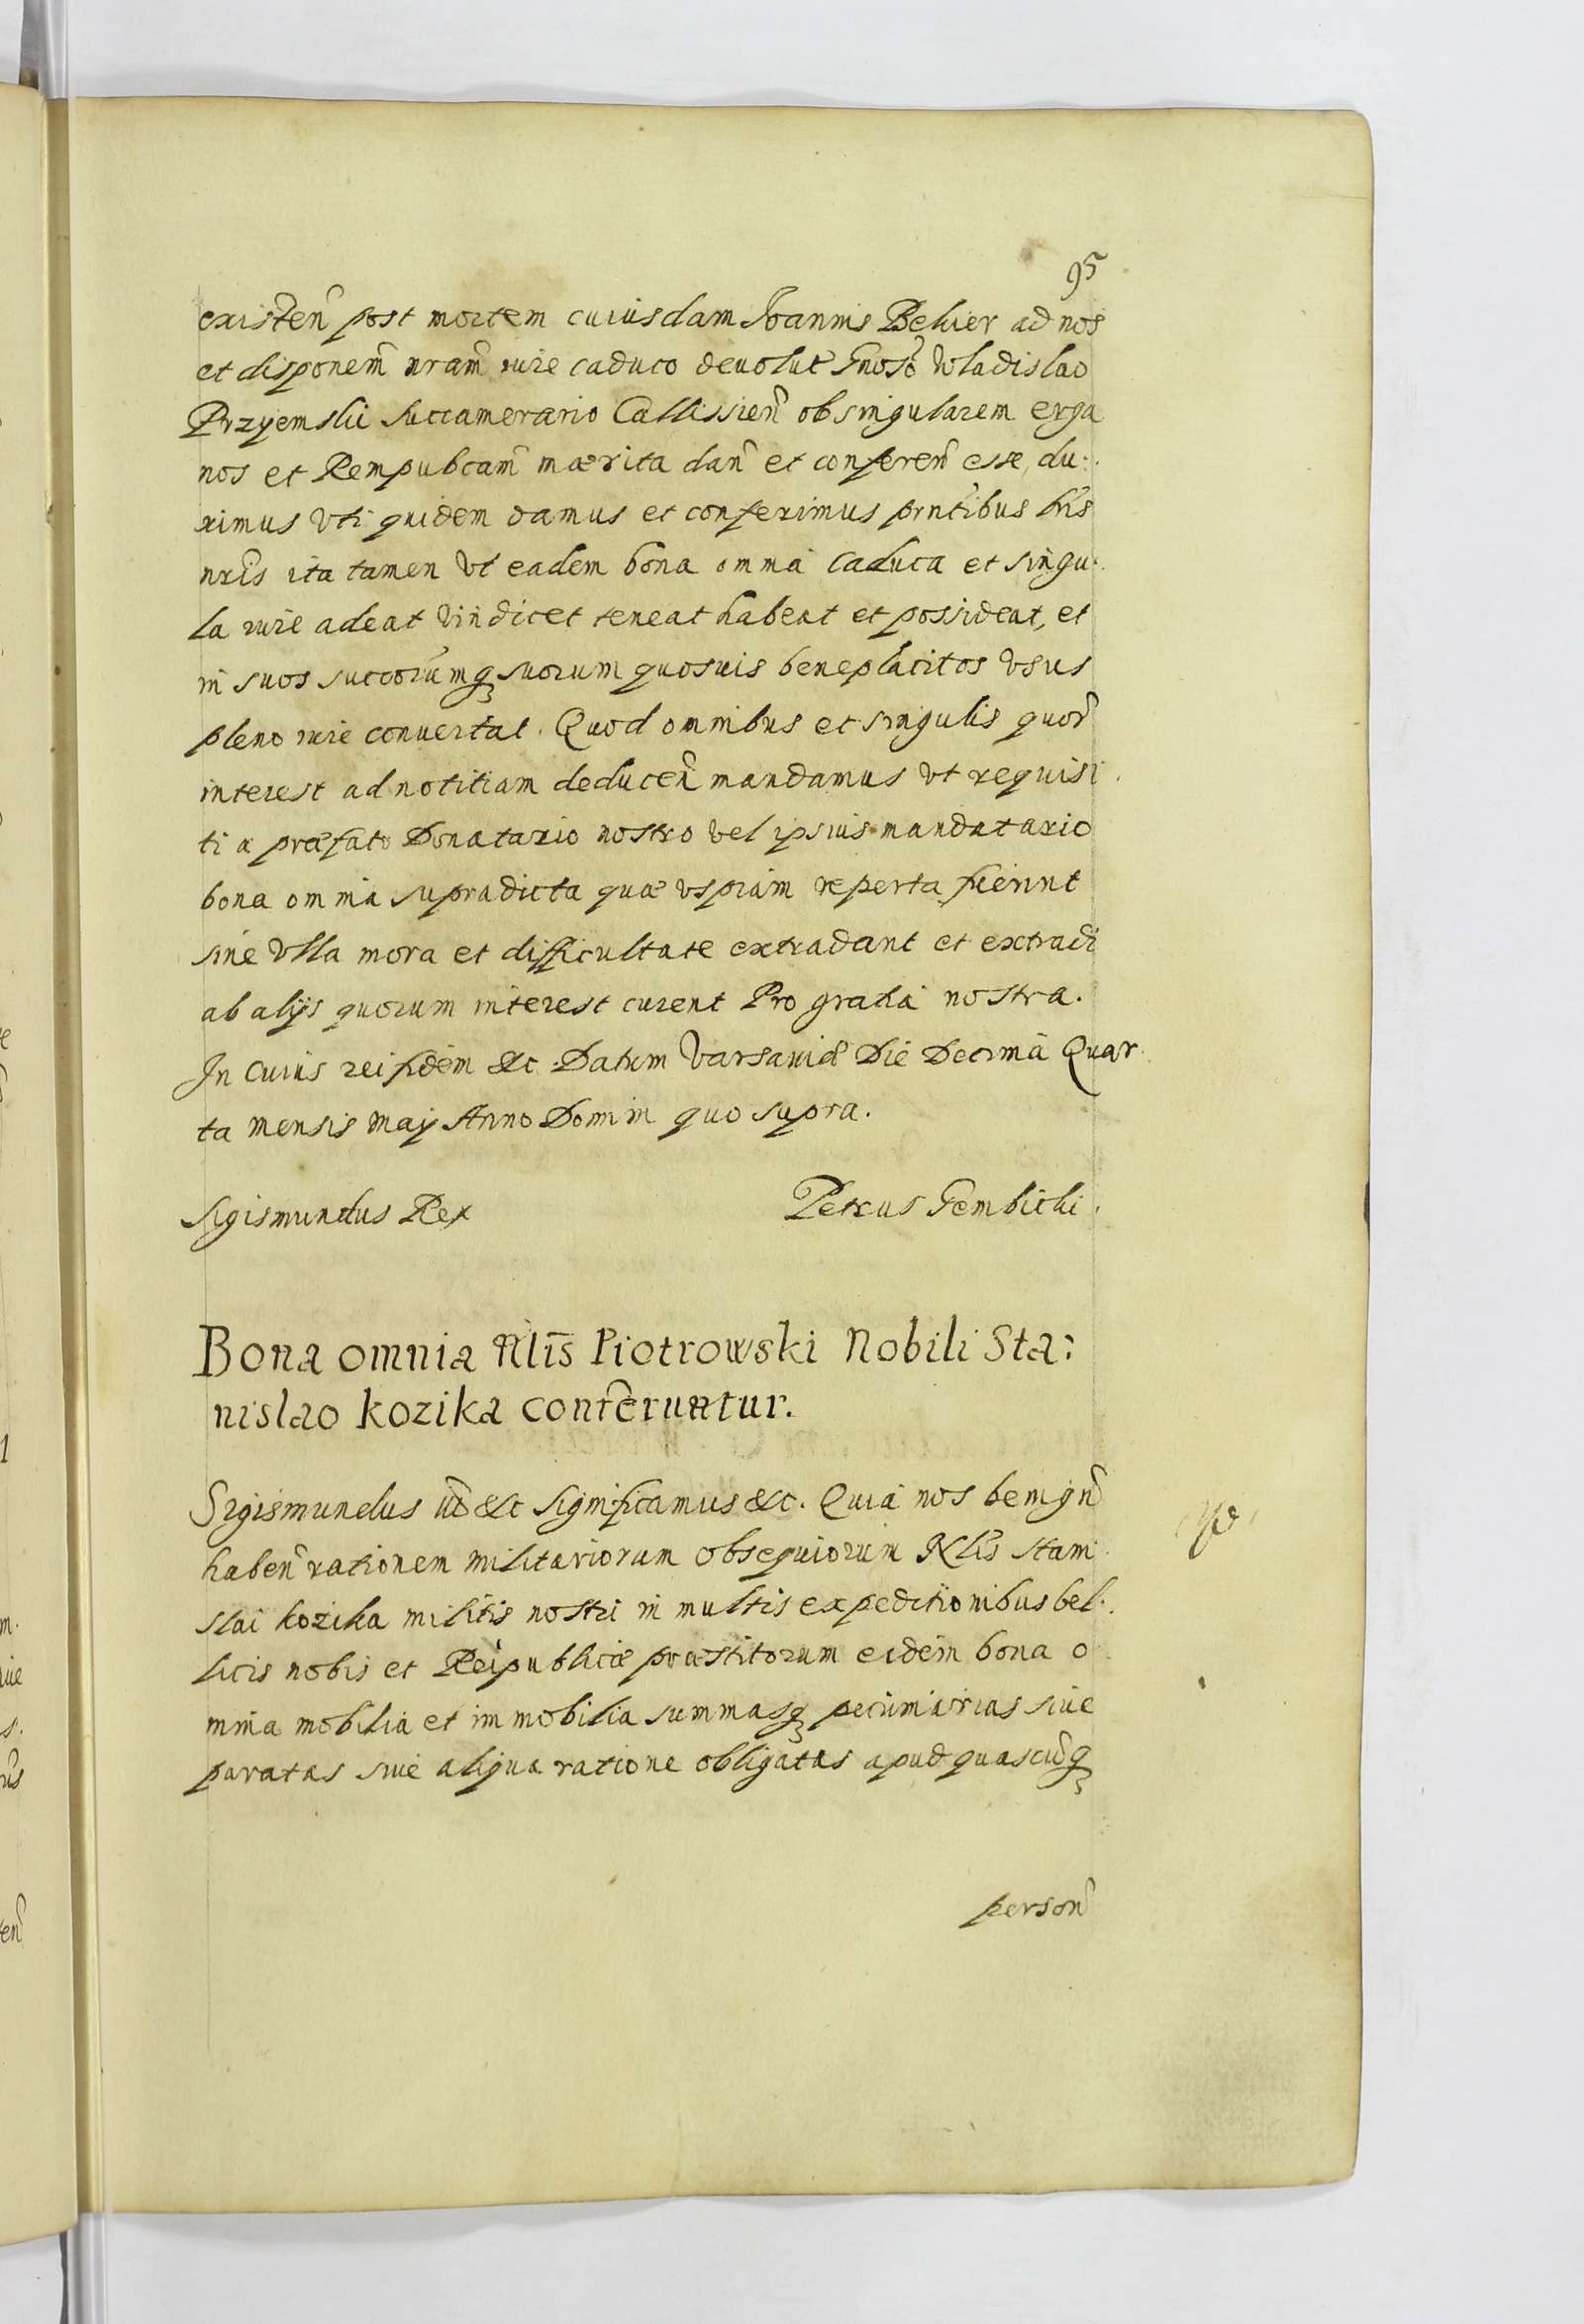 95
existen̄ post mortem cuiusdam Joannis Bekier ad nos
et disponem̄ nram̄ iure caduco deuolut̄ Gnoso Wladislao
Przyemski Succamerario Callissien̄ ob singularem erga
nos et Rempubcam̄ mærita dan̄ et conferen̄ esse, du:
ximus Vti quidem damus et conferimus prntibus lris
nris ita tamen Vt eadem bona omnia caduca et singu:
la iure adeat Vindicet teneat habeat et possideat, et
in suos succorumq suorum quosuis beneplacitos Vsus
pleno iure conuertat. Quod omnibus et singulis quor̄
interest ad notitiam deducen̄ mandamus Vt requisi
ti a præfato Donatario nostro Vel ipsius mandatario
bona omnia supradicta quæ Vspiam reperta fierint
sine Vlla mora et difficultate extradant et extradi
ab alijs quorum interest curent Pro gratia nostra.
In cuius rei fidem &c. Datum Varsauiæ Die Decima Quar
ta mensis Maij Anno Domini quo supra.
Sigismundus Rex Petrus Gembicki.
Bona omnia Nlis Piotrowski Nobili Sta:
nislao Kozika conferuntur.
Sigismundus &c Significamus &c. Quia nos benign̄
haben̄ rationem militariorum obsequiorum Nlis Stani
slai Kozika militis nostri in multis expeditionibus bel.
licis nobis et Reipublicæ præstitorum eidem bona o
mnia mobilia et immobilia summasq pecuniarias siue
paratas siue aliqua ratione obligatas apud quascūq
person̄